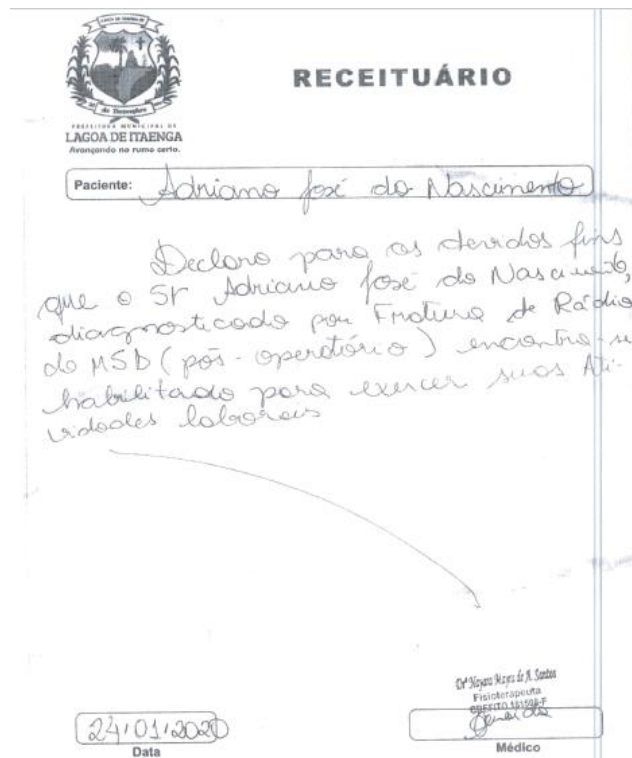 PREFEITURA MUNICIPAL DE
LAGOA DE ITAENGA
Avançando no rumo certo.
RECEITUÁRIO
Paciente: Adriano José do Nascimento
Declaro para os devidos fins
que o Sr Adriano José do Nascimento,
diagnosticado por Fratura de Rádio
do MSD (pós-operatório) encontra-se
habilitado para exercer suas Ati-
vidades laborais
24/01/2020
Data
Fisioterapeuta
Médico